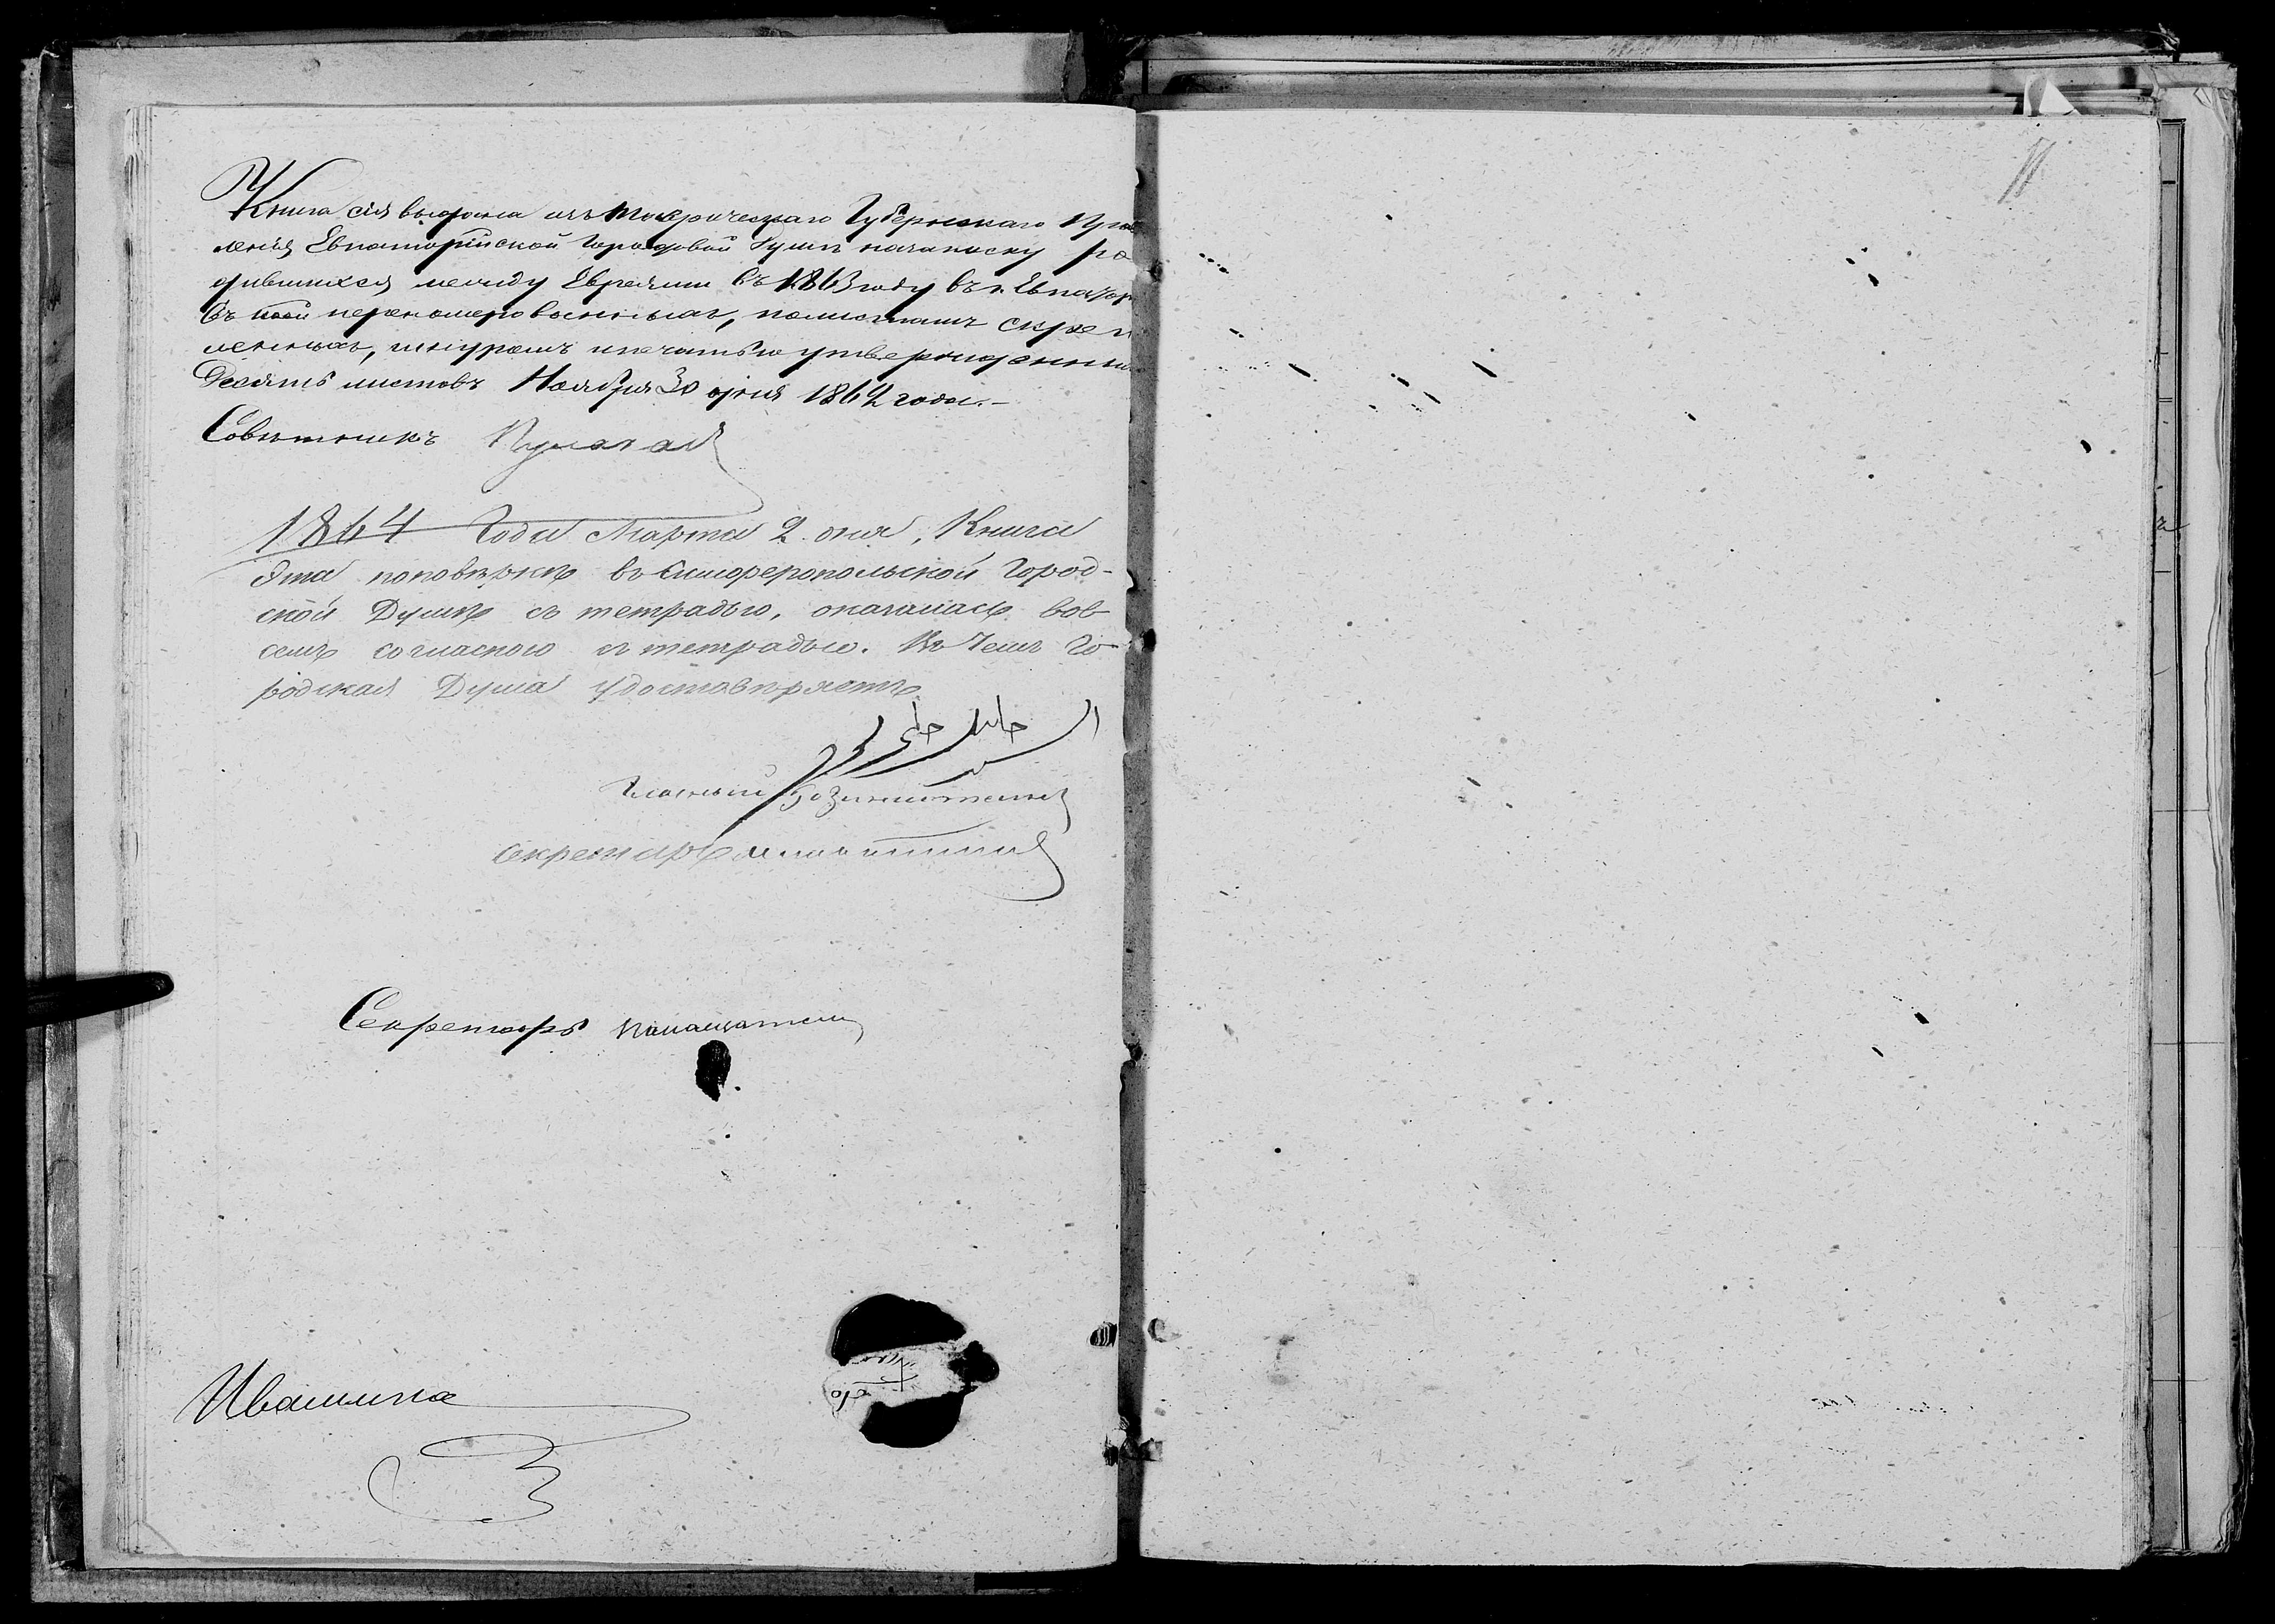 Книга сія выдана изъ Таврическаго Губернскаго Прав
ленія Евпаторійской Городовой Думѣ на записку ро
дившихся между Евреями въ 1863 году въ г. Евпатор
Въ ней перенумерованныхъ, по листамъ скрѣп
ленныхъ, шнуромъ и печатью утвержденны
Десять листовъ Ноября 30 дня 1862 года.
Совѣтникъ
1864 Года Марта 2 дня, Книга
эта по повѣркѣ въ Симферопольской Город-
ской Думѣ съ тетрадью, оказалась вов
семъ согласною съ тетрадью. Въ чемъ Го
родская Дума удостовѣряетъ
Гласный
Секретарь
Секретарь
Ивашина
11